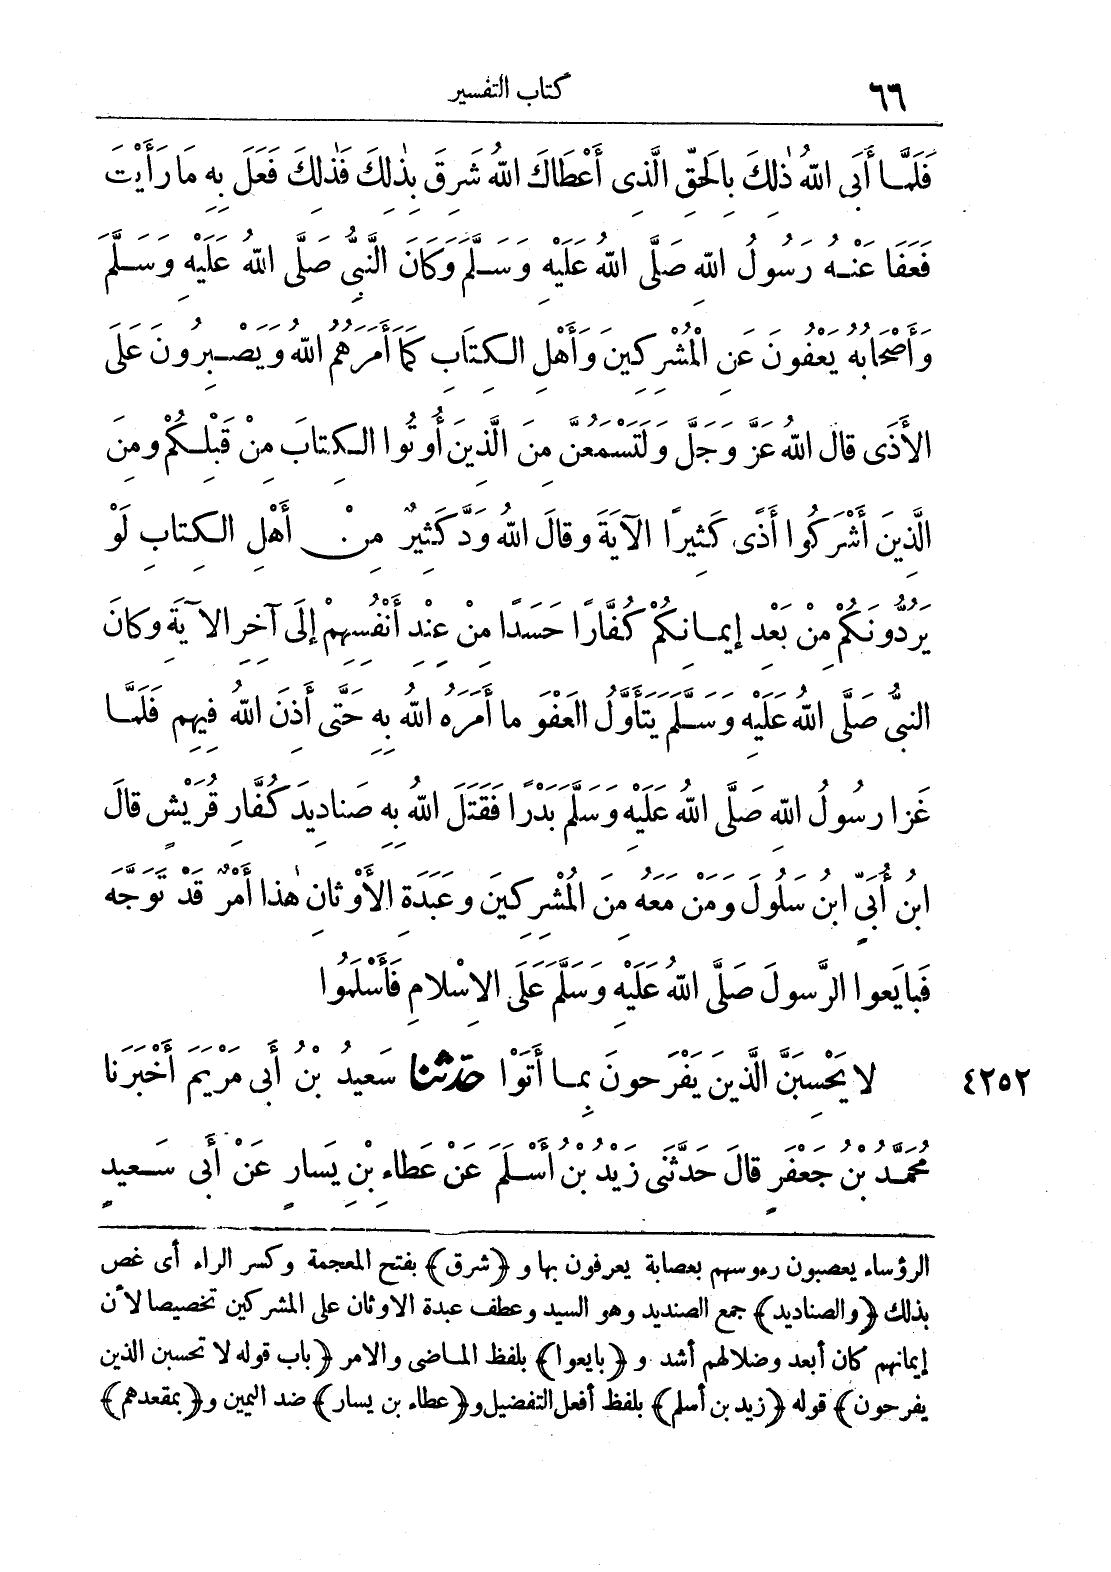 ٦٦
كتاب التفسير
فَلَمَّا أَبَى اللهُ ذٰلِكَ بِالْحَقِّ الَّذِى أَعْطَاكَ اللهُ شَرِقَ بِذٰلِكَ فَذٰلِكَ فَعَلَ بِهِ مَا رَأَيْتَ
فَعَفَا عَنْهُ رَسُولُ اللهِ صَلَّى اللهُ عَلَيْهِ وَسَلَّمَ وَكَانَ النَّبِىُّ صَلَّى اللهُ عَلَيْهِ وَسَلَّمَ
وَأَصْحَابُهُ يَعْفُونَ عَنِ الْمُشْرِكِينَ وَأَهْلِ الكِتَابِ كَمَا أَمَرَهُمُ اللهُ وَيَصْبِرُونَ عَلَى
الأَذَى قالَ اللهُ عَزَّ وَجَلَّ وَلَتَسْمَعُنَّ مِنَ الَّذِينَ أُوتُوا الكِتابَ مِنْ قَبْلِكُمْ ومِنَ
الَّذِينَ أَشْرَكُوا أَذًى كَثِيرًا الآيَةَ وقالَ اللهُ وَدَّ كَثِيرٌ مِنْ أَهْلِ الكِتابِ لَوْ
يَرُدُّونَكُمْ مِنْ بَعْدِ إِيمانِكُمْ كُفَّارًا حَسَدًا مِنْ عِنْدِ أَنْفُسِهِمْ إِلَى آخِرِ الآيَةِ وكانَ
النبىُّ صَلَّى اللهُ عَلَيْهِ وَسَلَّمَ يَتَأَوَّلُ العَفْوَ ما أَمَرَهُ اللهُ بِهِ حَتَّى أَذِنَ اللهُ فِيهِم فَلَمَّا
غَزا رسُولُ اللهِ صَلَّى اللهُ عَلَيْهِ وَسَلَّمَ بَدْرًا فَقَتَلَ اللهُ بِهِ صَنادِيدَ كُفَّارِ قُرَيْشٍ قالَ
ابنُ أُبَىٍّ ابنُ سَلُولَ وَمَنْ مَعَهُ مِنَ الْمُشْرِكِينَ وعَبَدَةِ الأَوْثانِ هٰذا أَمْرٌ قَدْ تَوَجَّهَ
فَبايَعوا الرَّسولَ صَلَّى اللهُ عَلَيْهِ وَسَلَّمَ عَلَى الإِسْلامِ فَأَسْلَمُوا
٤٢٥٢ لا يَحْسِبَنَّ الَّذِينَ يَفْرَحونَ بِما أَتَوْا حَدَّثَنا سَعِيدُ بْنُ أَبى مَرْيَمَ أَخْبَرَنا
مُحَمَّدُ بْنُ جَعْفَرٍ قالَ حَدَّثَنى زَيْدُ بْنُ أَسْلَمَ عَنْ عَطاءِ بْنِ يَسارٍ عَنْ أَبى سَعِيدٍ
الرؤساء يعصبون رءوسهم بعصابة يعرفون بها و ﴿شرق﴾ بفتح المعجمة وكسر الراء أى غص
بذلك ﴿والصناديد﴾ جمع الصنديد وهو السيد وعطف عبدة الاوثان على المشركين تخصيصا لأن
إيمانهم كان أبعد وضلالهم أشد و ﴿بايعوا﴾ بلفظ الماضى والامر ﴿باب قوله لا تحسبن الذين
يفرحون﴾ قوله ﴿زيد بن أسلم﴾ بلفظ أفعل التفضيل و﴿عطاء بن يسار﴾ ضد اليمين و﴿بمقعدهم﴾